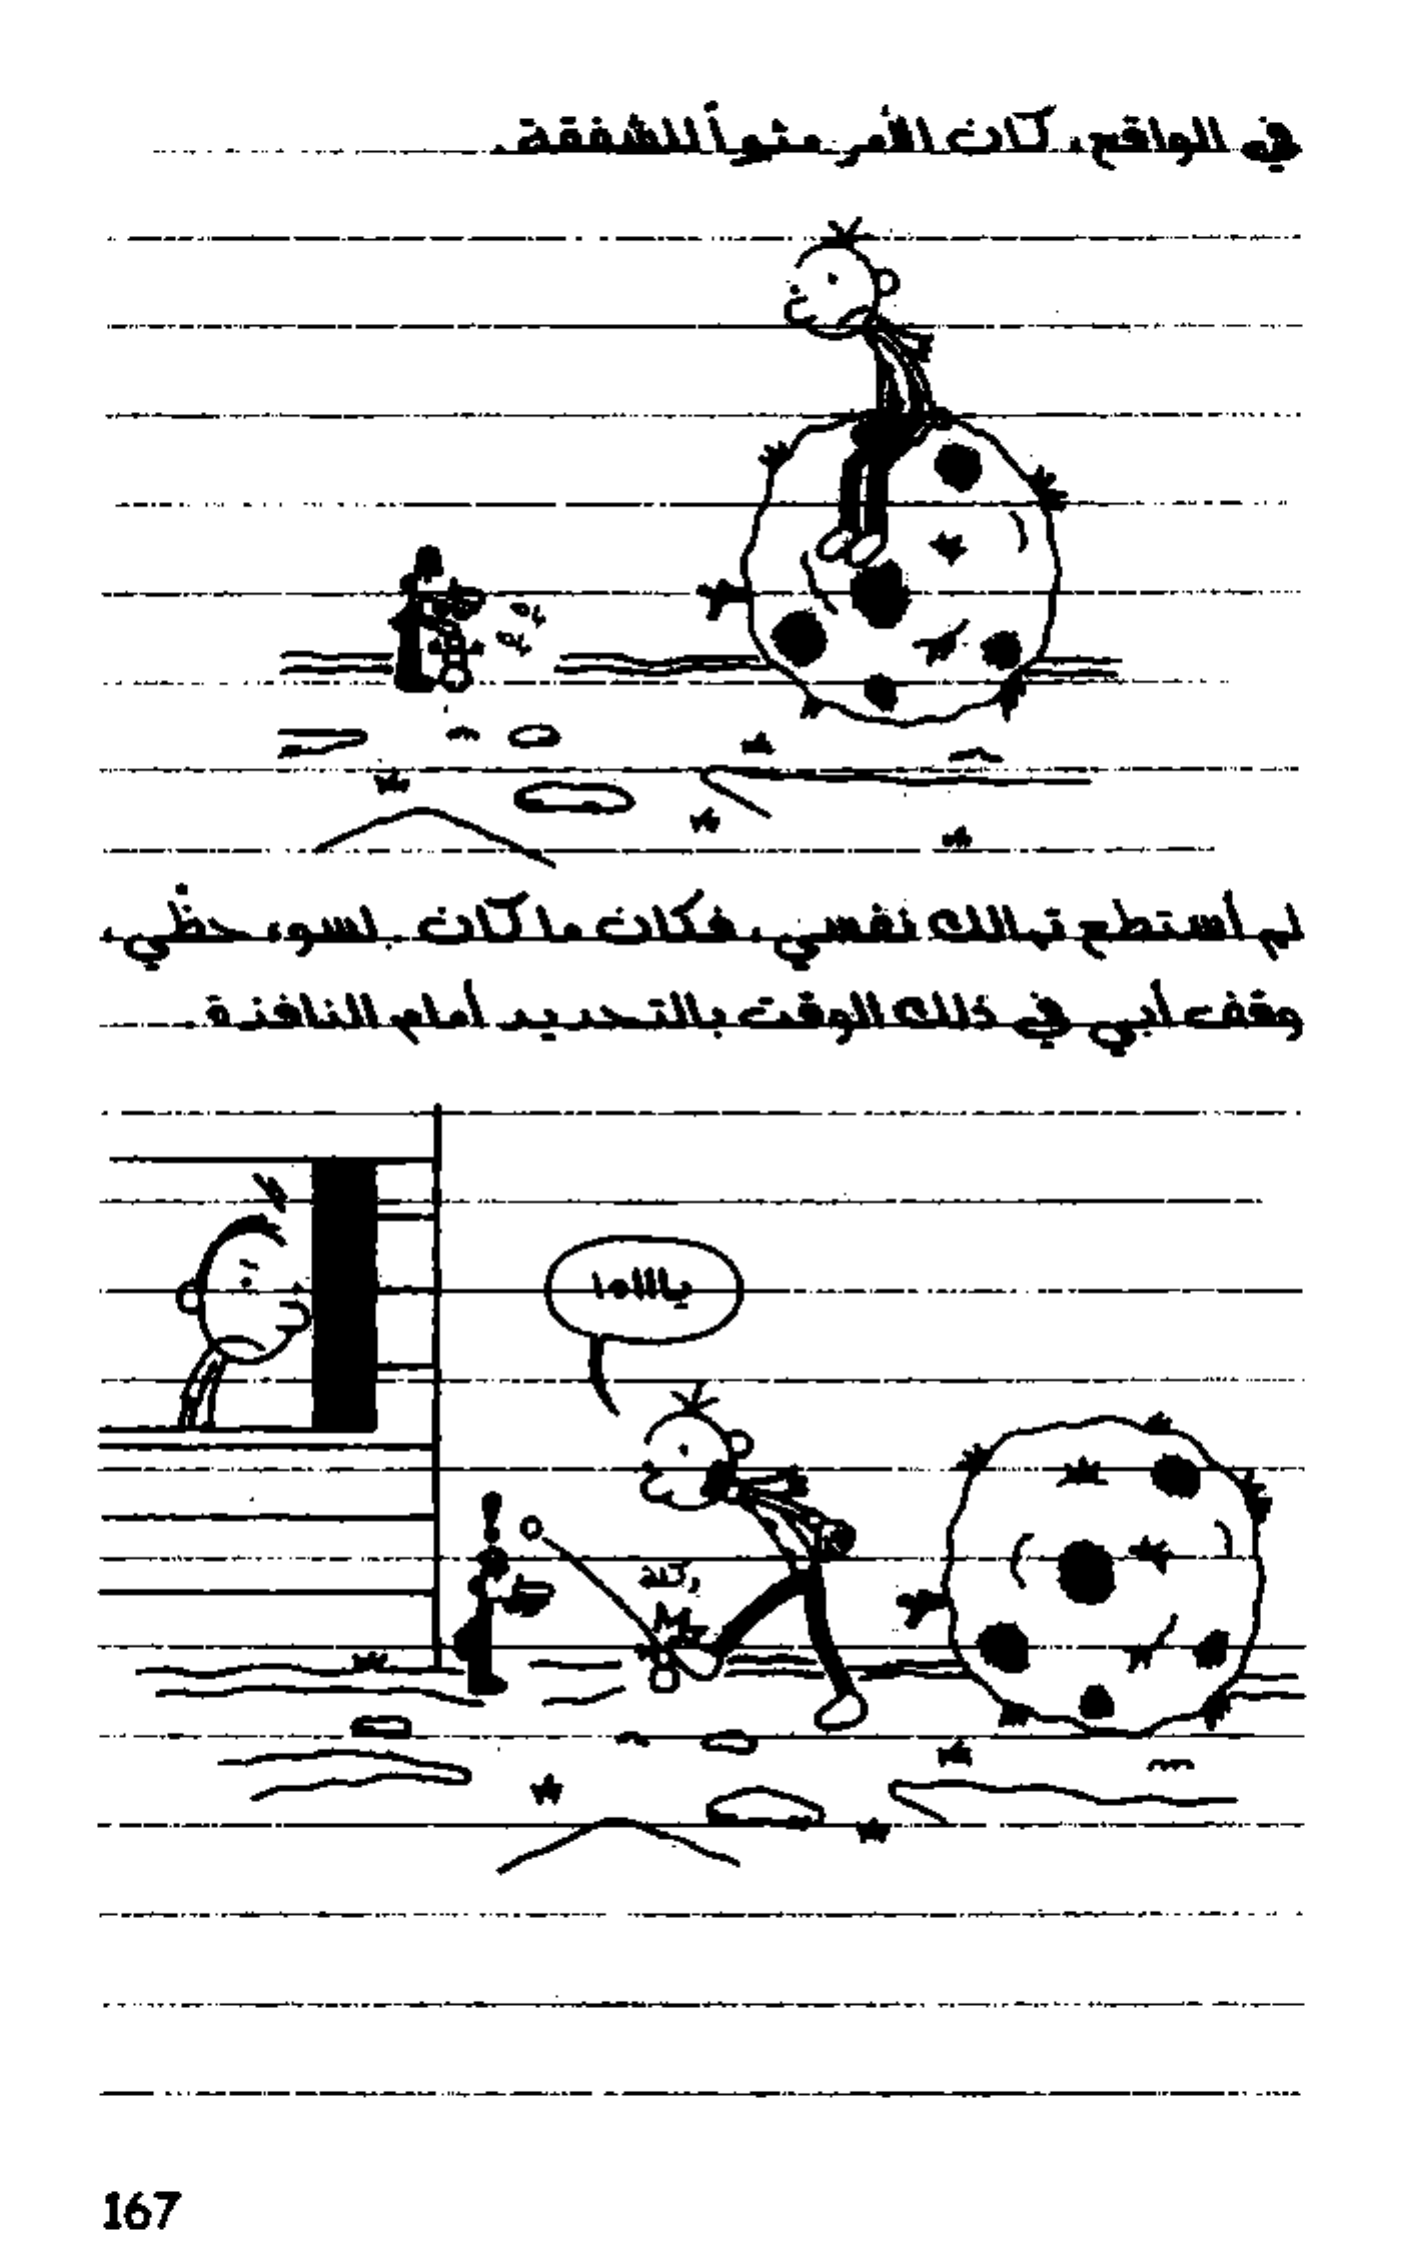 في الواقع، كان الأمر مثيراً للشفقة.
لم أستطع تمالك نفسي، فكان ما كان. لسوء حظّي،
وقف أبي في ذلك الوقت بالتحديد أمام النافذة.
ياااه!
ركلة
167